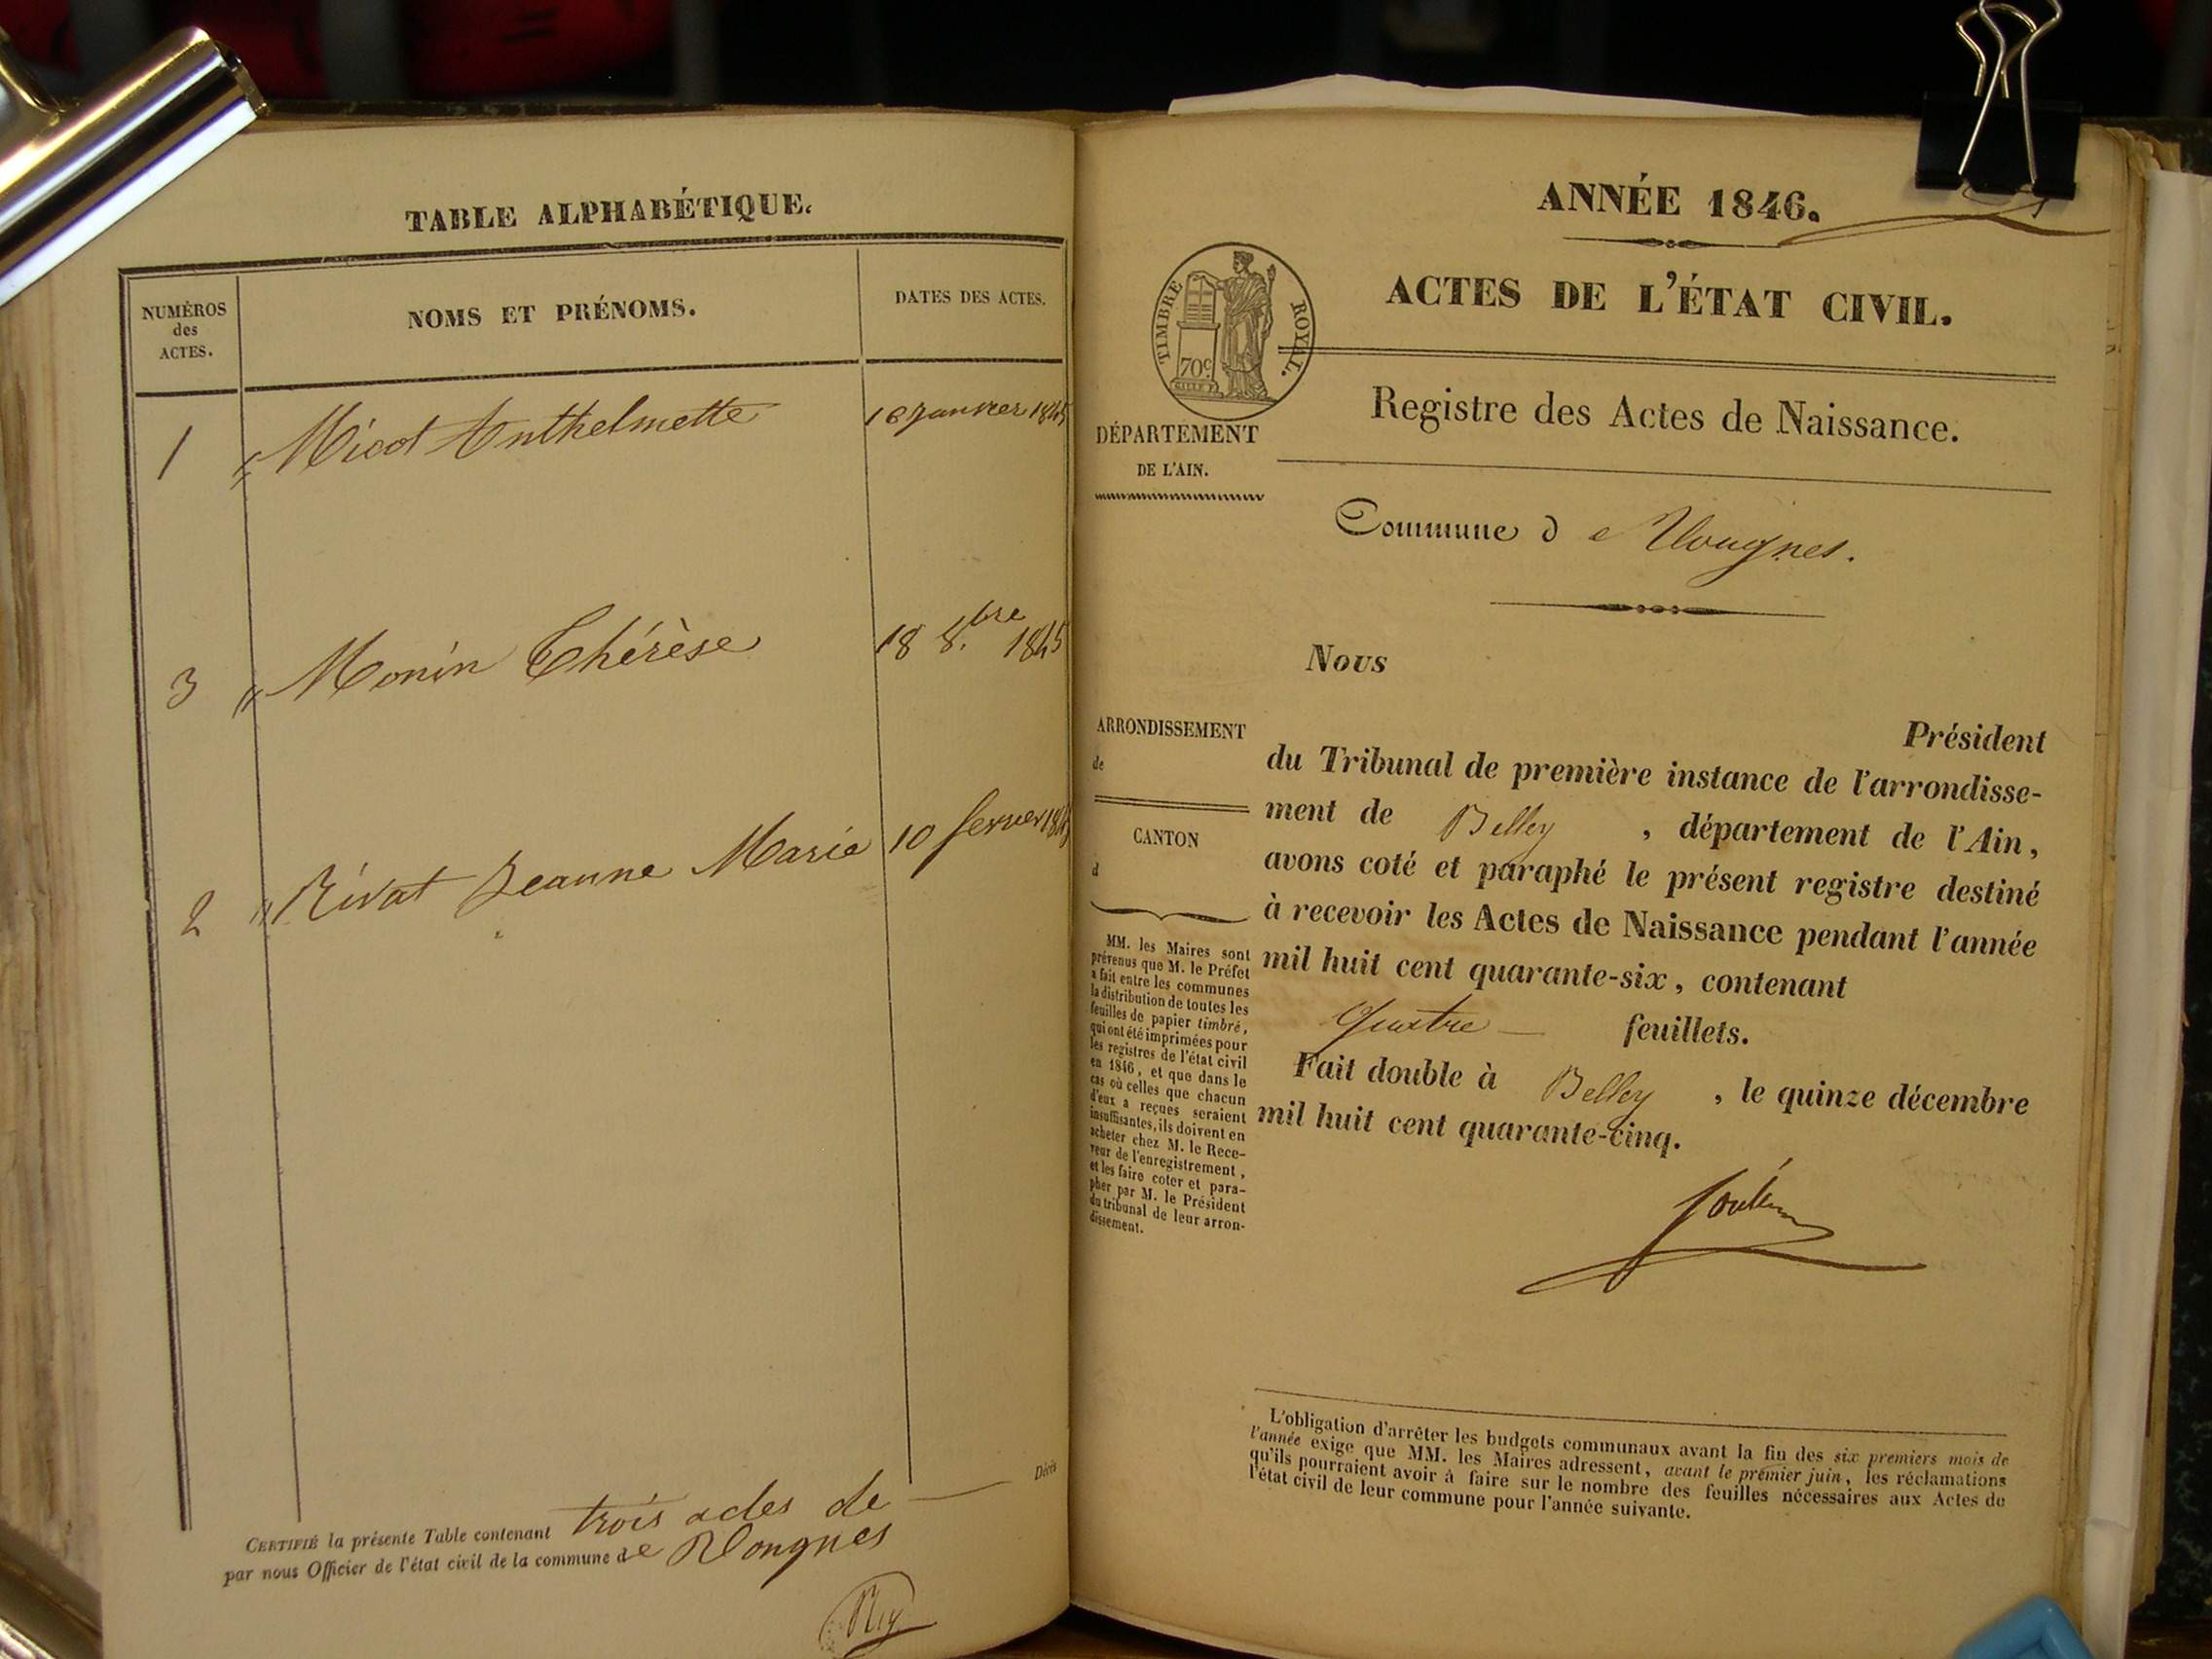 TABLE ALPHABÉTIQUE.
NUMÉROS
des
ACTES.
NOMS ET PRÉNOMS.
DATES DES ACTES.
1 " Micot Anthelmette 16 janvier 1845
3 " Monin Thérèse 18 8.bre 1845
2 " Rivat Jeanne Marie 10 fevrier 1845
Décès
CERTIFIÉ la présente Table contenant trois actes de
par nous Officier de l'état civil de la commune de
ANNÉE 1846.
ACTES DE L'ÉTAT CIVIL.
TIMBRE ROYAL.
70c
Registre des Actes de Naissance.
DÉPARTEMENT
DE L'AIN.
Commune de
Nous
Président
ARRONDISSEMENT
de
CANTON
d
du Tribunal de première instance de l'arrondisse-
ment de Belley , département de l'Ain,
avons coté et paraphé le présent registre destiné
à recevoir les Actes de Naissance pendant l'année
mil huit cent quarante-six, contenant
quatre feuillets.
Fait double à Belley , le quinze décembre
mil huit cent quarante-cinq.
MM. les Maires sont
prévenus que M. le Préfet
a fait entre les communes
la distribution de toutes les
feuilles de papier timbré,
qui ont été imprimées pour
les registres de l'état civil
en 1846, et que dans le
cas où celles que chacun
d'eux a reçues seraient
insuffisantes, ils doivent en
acheter chez M. le Rece-
veur de l'enregistrement,
et les faire coter et para-
pher par M. le Président
du tribunal de leur arron-
dissement.
L'obligation d'arrêter les budgets communaux avant la fin des six premiers mois de
l'année exige que MM. les Maires adressent, avant le premier juin, les réclamations
qu'ils pourraient avoir à faire sur le nombre des feuilles nécessaires aux Actes de
l'état civil de leur commune pour l'année suivante.